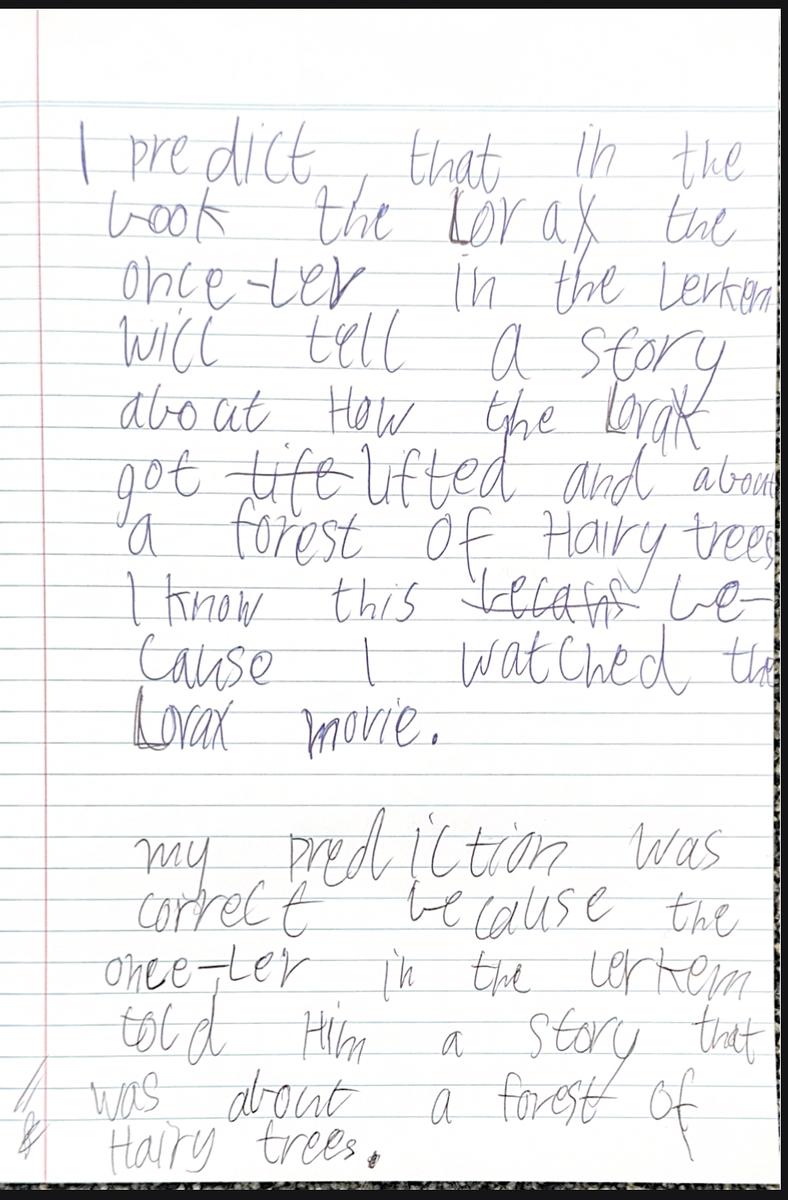 I predict, that in the
book the Lorax the
once-ler in the Lerkem
will tell a story
about How the Lorax
got life lifted and about
a forest of Hairy trees
I know this be-
cause I watched the
Lorax movie.
my prediction was
correct because the
once-ler in the lerkem
told Him a story that
was about a forest of
Hairy trees.